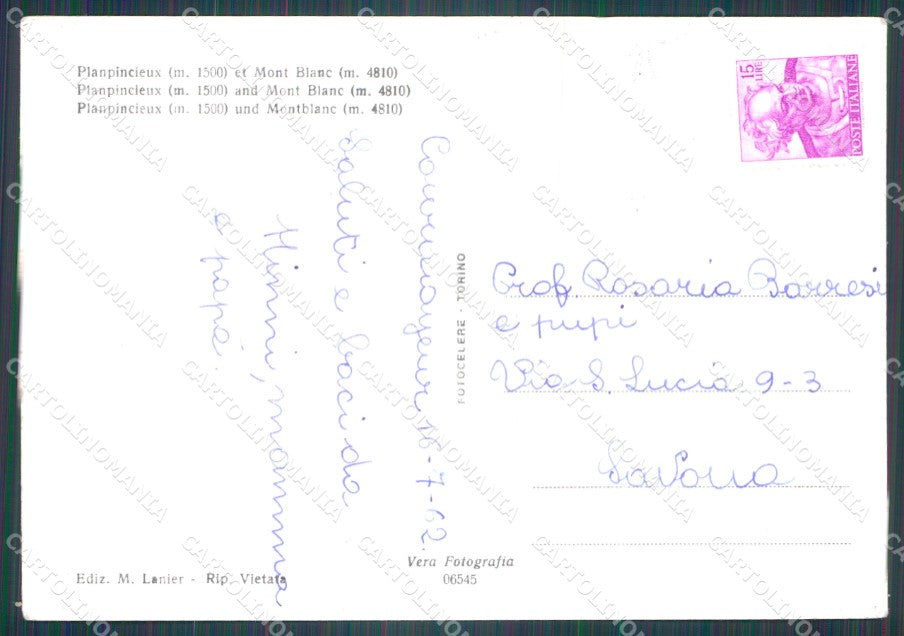 Planpincieux (m. 1500) et Mont Blanc (m. 4810)
Planpincieux (m. 1500) and Mont Blanc (m. 4810)
Planpincieux (m. 1500) und Montblanc (m. 4810)
15 LIRE
POSTE ITALIANE
Courmayeur, 16-7-62
Saluti e baci da
Mimmi, mamma
e papà.
FOTOCELERE - TORINO
Prof. Rosaria Barresi
e pupi
Via S. Lucia 9-3
Savona
Ediz. M. Lanier - Rip. Vietata
Vera Fotografia
06545
CARTOLINOMANIA